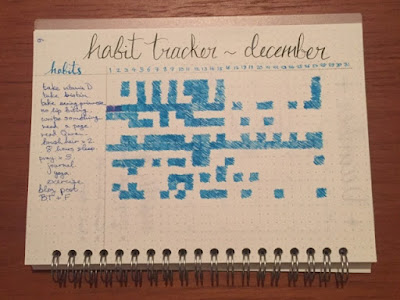 habit tracker ~ december
habits
1 2 3 4 5 6 7 8 9 10 11 12 13 14 15 16 17 18 19 20 21 22 23 24 25 26 27 28 29 30 31
take vitamin D
take biotin
take evening primrose
no lip biting
write something
read a page
read Quran
brush hair x 2
8 hours sleep
pray x 5
journal
yoga
exercise
blog post